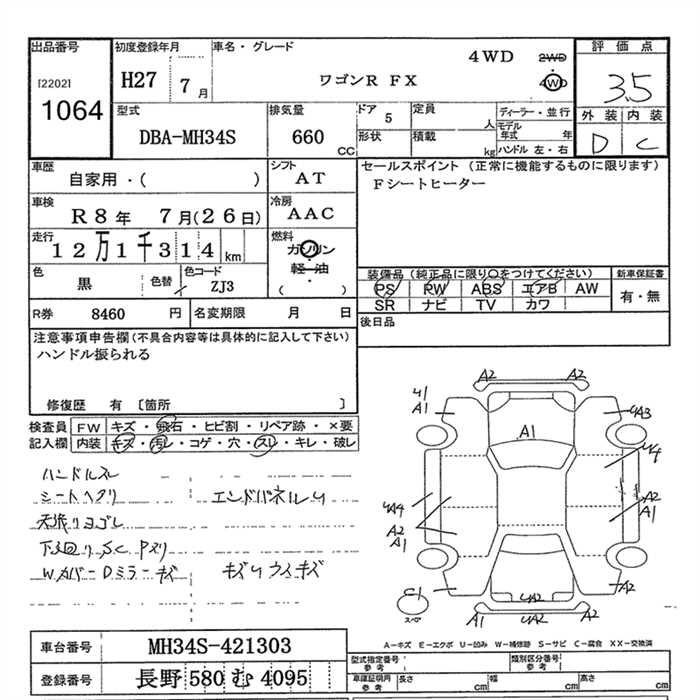 出品番号
[2202]
1064
初度登録年月
H27 7月
車名・グレード
ワゴンR FX
4WD
2WD
4WD
評価点
3.5
外装 内装
D C
型式
DBA-MH34S
排気量
660 CC
ドア 5
定員 人
形状
積載 kg
ディーラー・並行
モデル年式 年
ハンドル 左・右
車歴
自家用・( )
シフト
AT
車検
R8年 7月(26日)
冷房
AAC
走行
12万1千314km
燃料
ガソリン
軽・油
( )
色
黒
色替
色コード
ZJ3
R券 8460 円
名変期限 月 日
セールスポイント (正常に機能するものに限ります)
Fシートヒーター
装備品 (純正品に限り○をつけてください)
PS PW ABS エアB AW
SR ナビ TV カワ
新車保証書
有・無
後日品
注意事項申告欄(不具合内容等は具体的に記入して下さい)
ハンドル振られる
修復歴 有 〔箇所 〕
検査員記入欄
FW キズ・飛石・ヒビ割・リペア跡・×要
内装 キズ・汚レ・コゲ・穴・スレ・キレ・破レ
ハンドルスレ
シートヘタリ エンドパネルU
天張りヨゴレ
下廻りS.C Pヌリ
WカバーDミラーキズ キズUウスキズ
A2
A2
U1
A1
UA3
A1
U4
UA4
A2
A1
A2
A1
E1
スペア
UA2
A2
A1
UA2
A2
A-キズ E-エクボ U-凹み W-補修跡 S-サビ C-腐食 XX-交換済
車台番号 MH34S-421303
登録番号 長野 580 む 4095
型式指定番号 参考
類別区分番号 参考
車庫証明用 参考
長さ cm
幅 cm
高さ cm